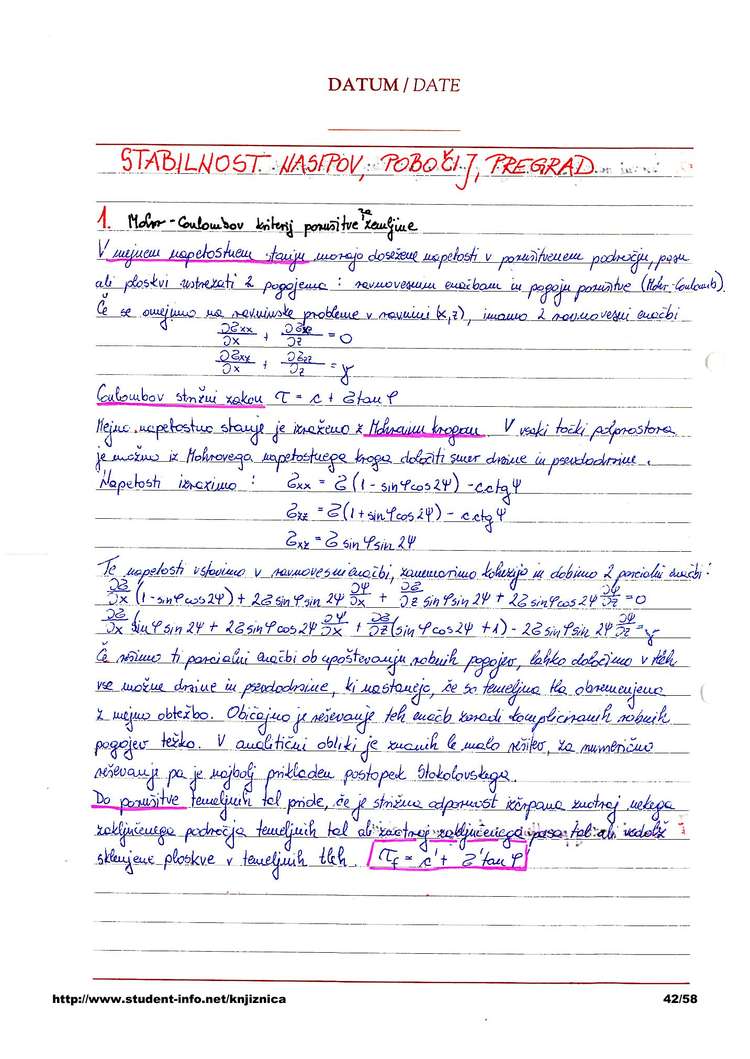 DATUM / DATE
STABILNOST NASIPOV, POBOČIJ, PREGRAD
1. Mohr-Coulombov kriterij porušitve za zemljine
V mejnem napetostnem stanju morajo dosežene napetosti v porušitvenem področju, pasu
ali ploskvi ustrezati 2 pogojema : ravnovesnim enačbam in pogoju porušitve (Mohr-Coulomb).
Če se omejimo na ravninske probleme v ravnini (x,z), imamo 2 ravnovesni enačbi
∂σxx/∂x + ∂σxz/∂z = 0
∂σxz/∂x + ∂σzz/∂z = γ
Coulombov strižni zakon τ = c + σ tan φ
Mejno napetostno stanje je izraženo z Mohrovim krogom. V vsaki točki polprostora
je možno iz Mohrovega napetostnega kroga določiti smer drsine in psevdodrsine.
Napetosti izrazimo : σxx = σ(1 - sin φ cos 2ψ) - c ctg φ
σzz = σ(1 + sin φ cos 2ψ) - c ctg φ
σxz = σ sin φ sin 2ψ
Te napetosti vstavimo v ravnovesni enačbi, zanemarimo kohezijo in dobimo 2 parcialni enačbi :
∂σ/∂x (1 - sin φ cos 2ψ) + 2σ sin φ sin 2ψ ∂ψ/∂x + ∂σ/∂z sin φ sin 2ψ + 2σ sin φ cos 2ψ ∂ψ/∂z = 0
∂σ/∂x (sin φ sin 2ψ + 2σ sin φ cos 2ψ ∂ψ/∂x + ∂σ/∂z (sin φ cos 2ψ + 1) - 2σ sin φ sin 2ψ ∂ψ/∂z = γ
Če rešimo ti parcialni enačbi ob upoštevanju robnih pogojev, lahko določimo v tleh
vse možne drsine in psevdodrsine, ki nastanejo, če so temeljna tla obremenjena
z mejno obtežbo. Običajno je reševanje teh enačb zaradi kompliciranih robnih
pogojev težko. V analitični obliki je znanih le malo rešitev, za numerično
reševanje pa je najbolj prikladen postopek Stokolovskega.
Do porušitve temeljnih tal pride, če je strižna odpornost izčrpana znotraj nekega
zaključenega področja temeljnih tal ali znotraj zaključenega pasa tal ali vzdolž
sklenjene ploskve v temeljnih tleh. τf = c' + σ' tan φ'
http://www.student-info.net/knjiznica
42/58